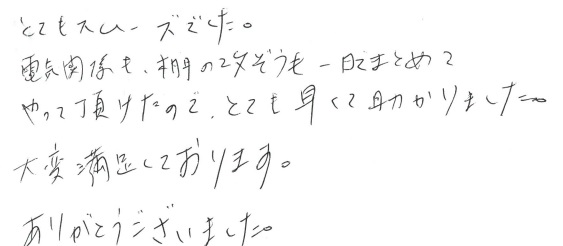 とてもスムーズでした。
電気関係も、棚の改ぞうも一日でまとめて
やって頂けたので、とても早くて助かりました。
大変満足しております。
ありがとうございました。